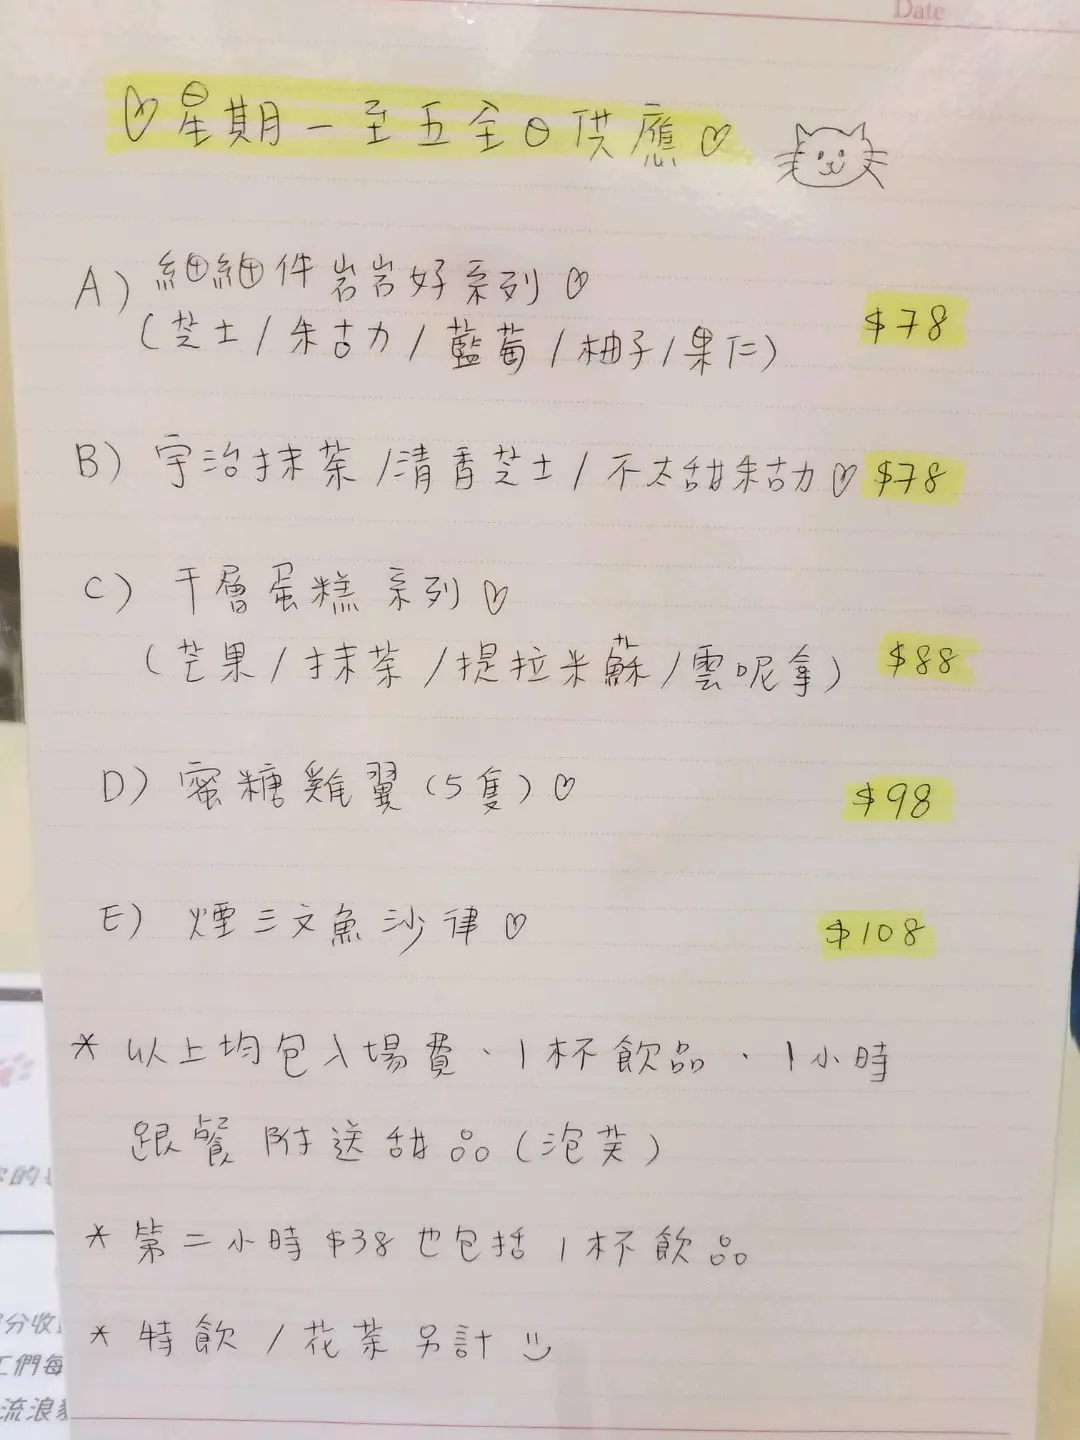 Date
♡星期一至五全日供應♡
A) 細細件岩岩好系列♡
(芝士/朱古力/藍莓/柚子/果仁) $78
B) 宇治抹茶/清香芝士/不太甜朱古力♡ $78
C) 千層蛋糕系列♡
(芒果/抹茶/提拉米蘇/雲呢拿) $88
D) 蜜糖雞翼(5隻)♡ $98
E) 煙三文魚沙律♡ $108
* 以上均包入場費、1杯飲品、1小時
跟餐附送甜品(泡芙)
* 第二小時$38也包括1杯飲品
* 特飲/花茶另計
的
分收
們每
流浪